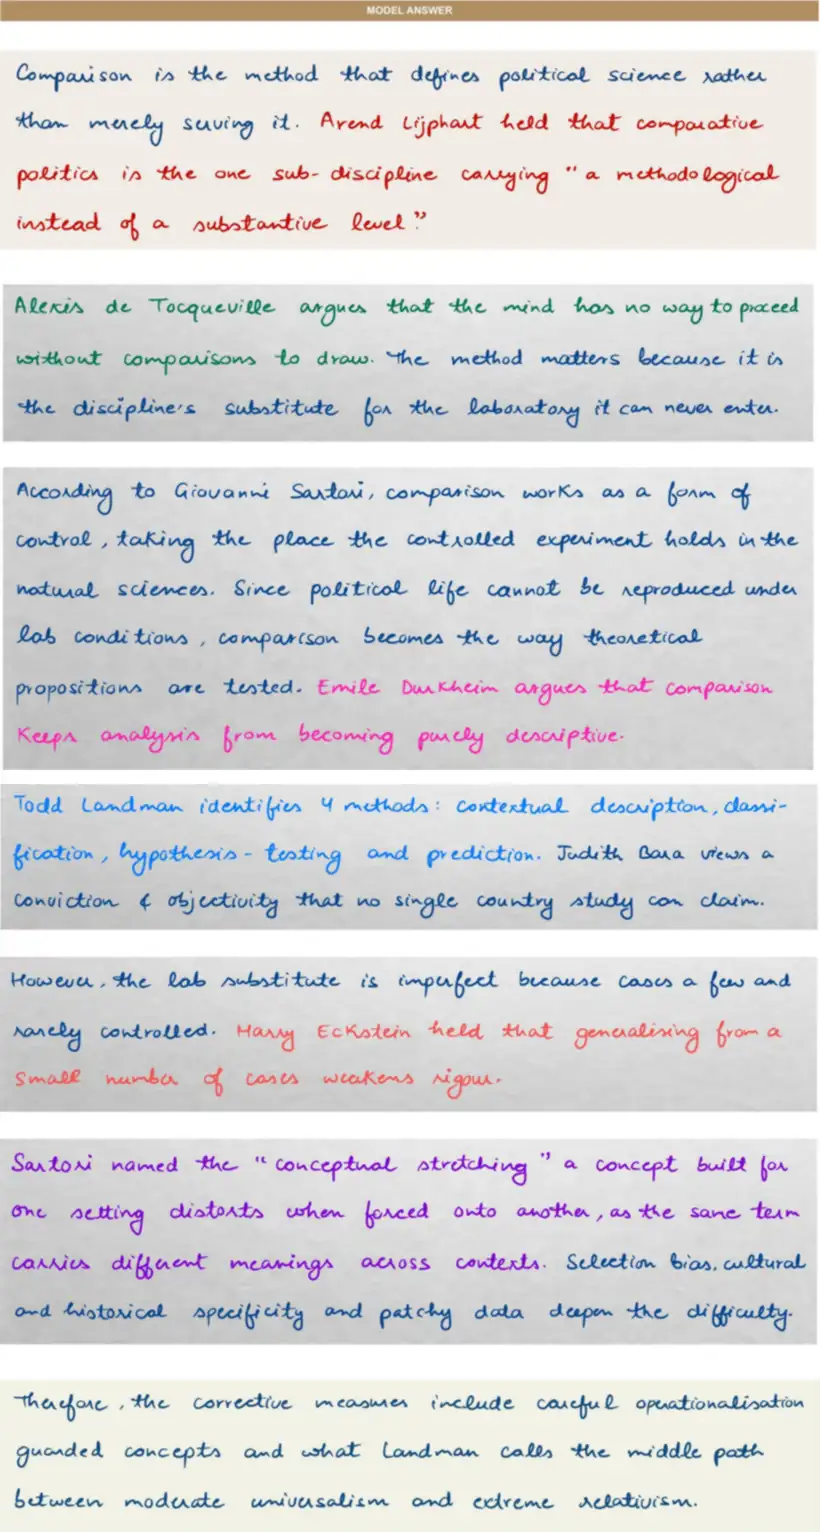 MODEL ANSWER
Comparison is the method that defines political science rather
than merely serving it. Arend Lijphart held that comparative
politics is the one sub-discipline carrying "a methodological
instead of a substantive level".
Alexis de Tocqueville argues that the mind has no way to proceed
without comparisons to draw. The method matters because it is
the discipline's substitute for the laboratory it can never enter.
According to Giovanni Sartori, comparison works as a form of
control, taking the place the controlled experiment holds in the
natural sciences. Since political life cannot be reproduced under
lab conditions, comparison becomes the way theoretical
propositions are tested. Emile Durkheim argues that comparison
Keeps analysis from becoming purely descriptive.
Todd Landman identifies 4 methods: contextual description, classi-
fication, hypothesis-testing and prediction. Judith Bara views a
conviction & objectivity that no single country study can claim.
However, the lab substitute is imperfect because cases a few and
rarely controlled. Harry Eckstein held that generalising from a
small number of cases weakens rigour.
Sartori named the "conceptual stretching" a concept built for
one setting distorts when forced onto another, as the same term
carries different meanings across contexts. Selection bias, cultural
and historical specificity and patchy data deepen the difficulty.
Therefore, the corrective measures include careful operationalisation
guarded concepts and what Landman calls the middle path
between moderate universalism and extreme relativism.